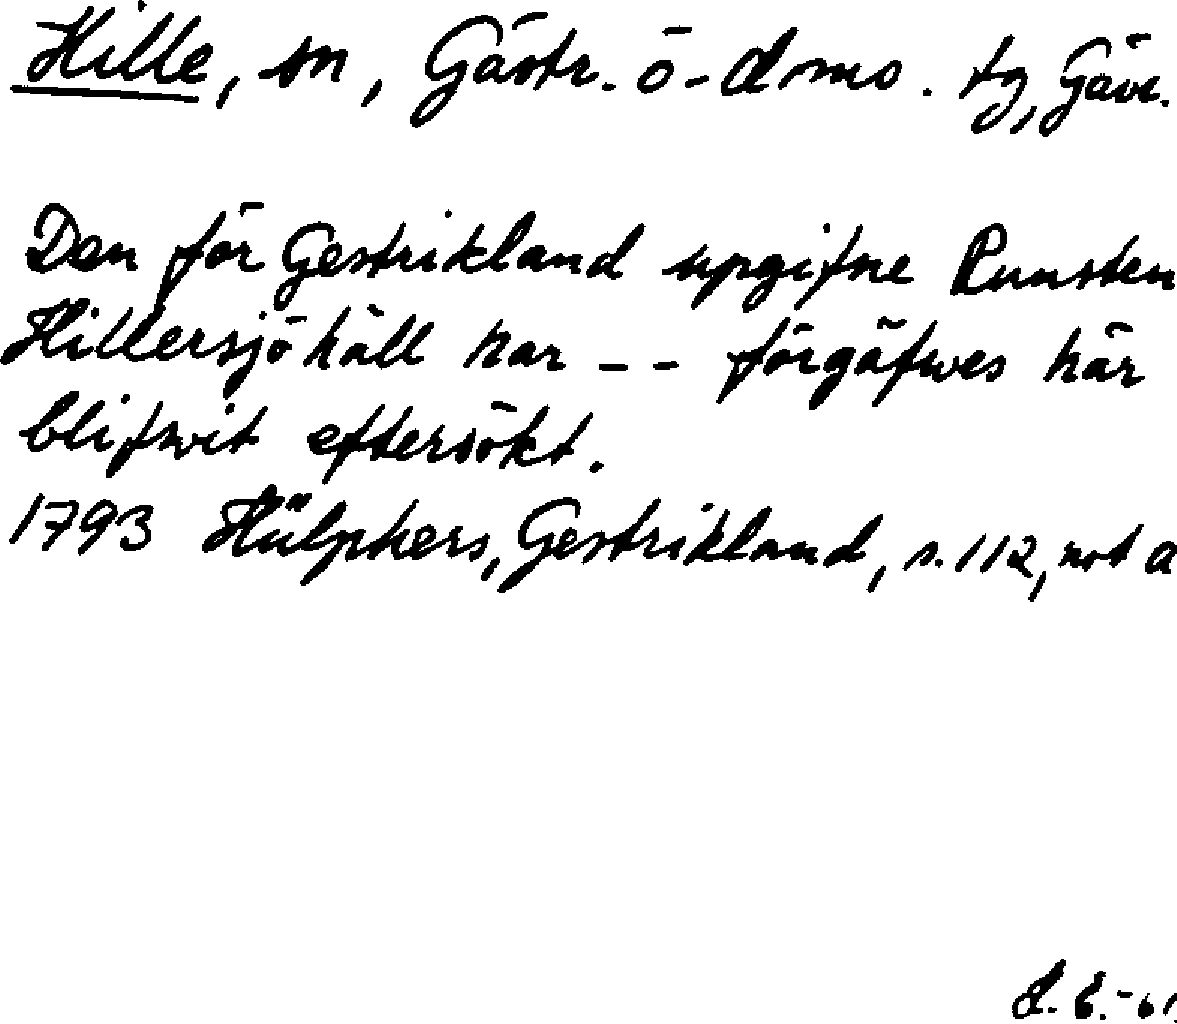 Hille, sn, Gästr. ö-dms. tg, Gävl.
Den för Gestrikland upgifne Runsten
Hillersjö häll har -- förgäfwes här
blifwit eftersökt.
1793 Hülphers, Gestrikland, s. 112, not a